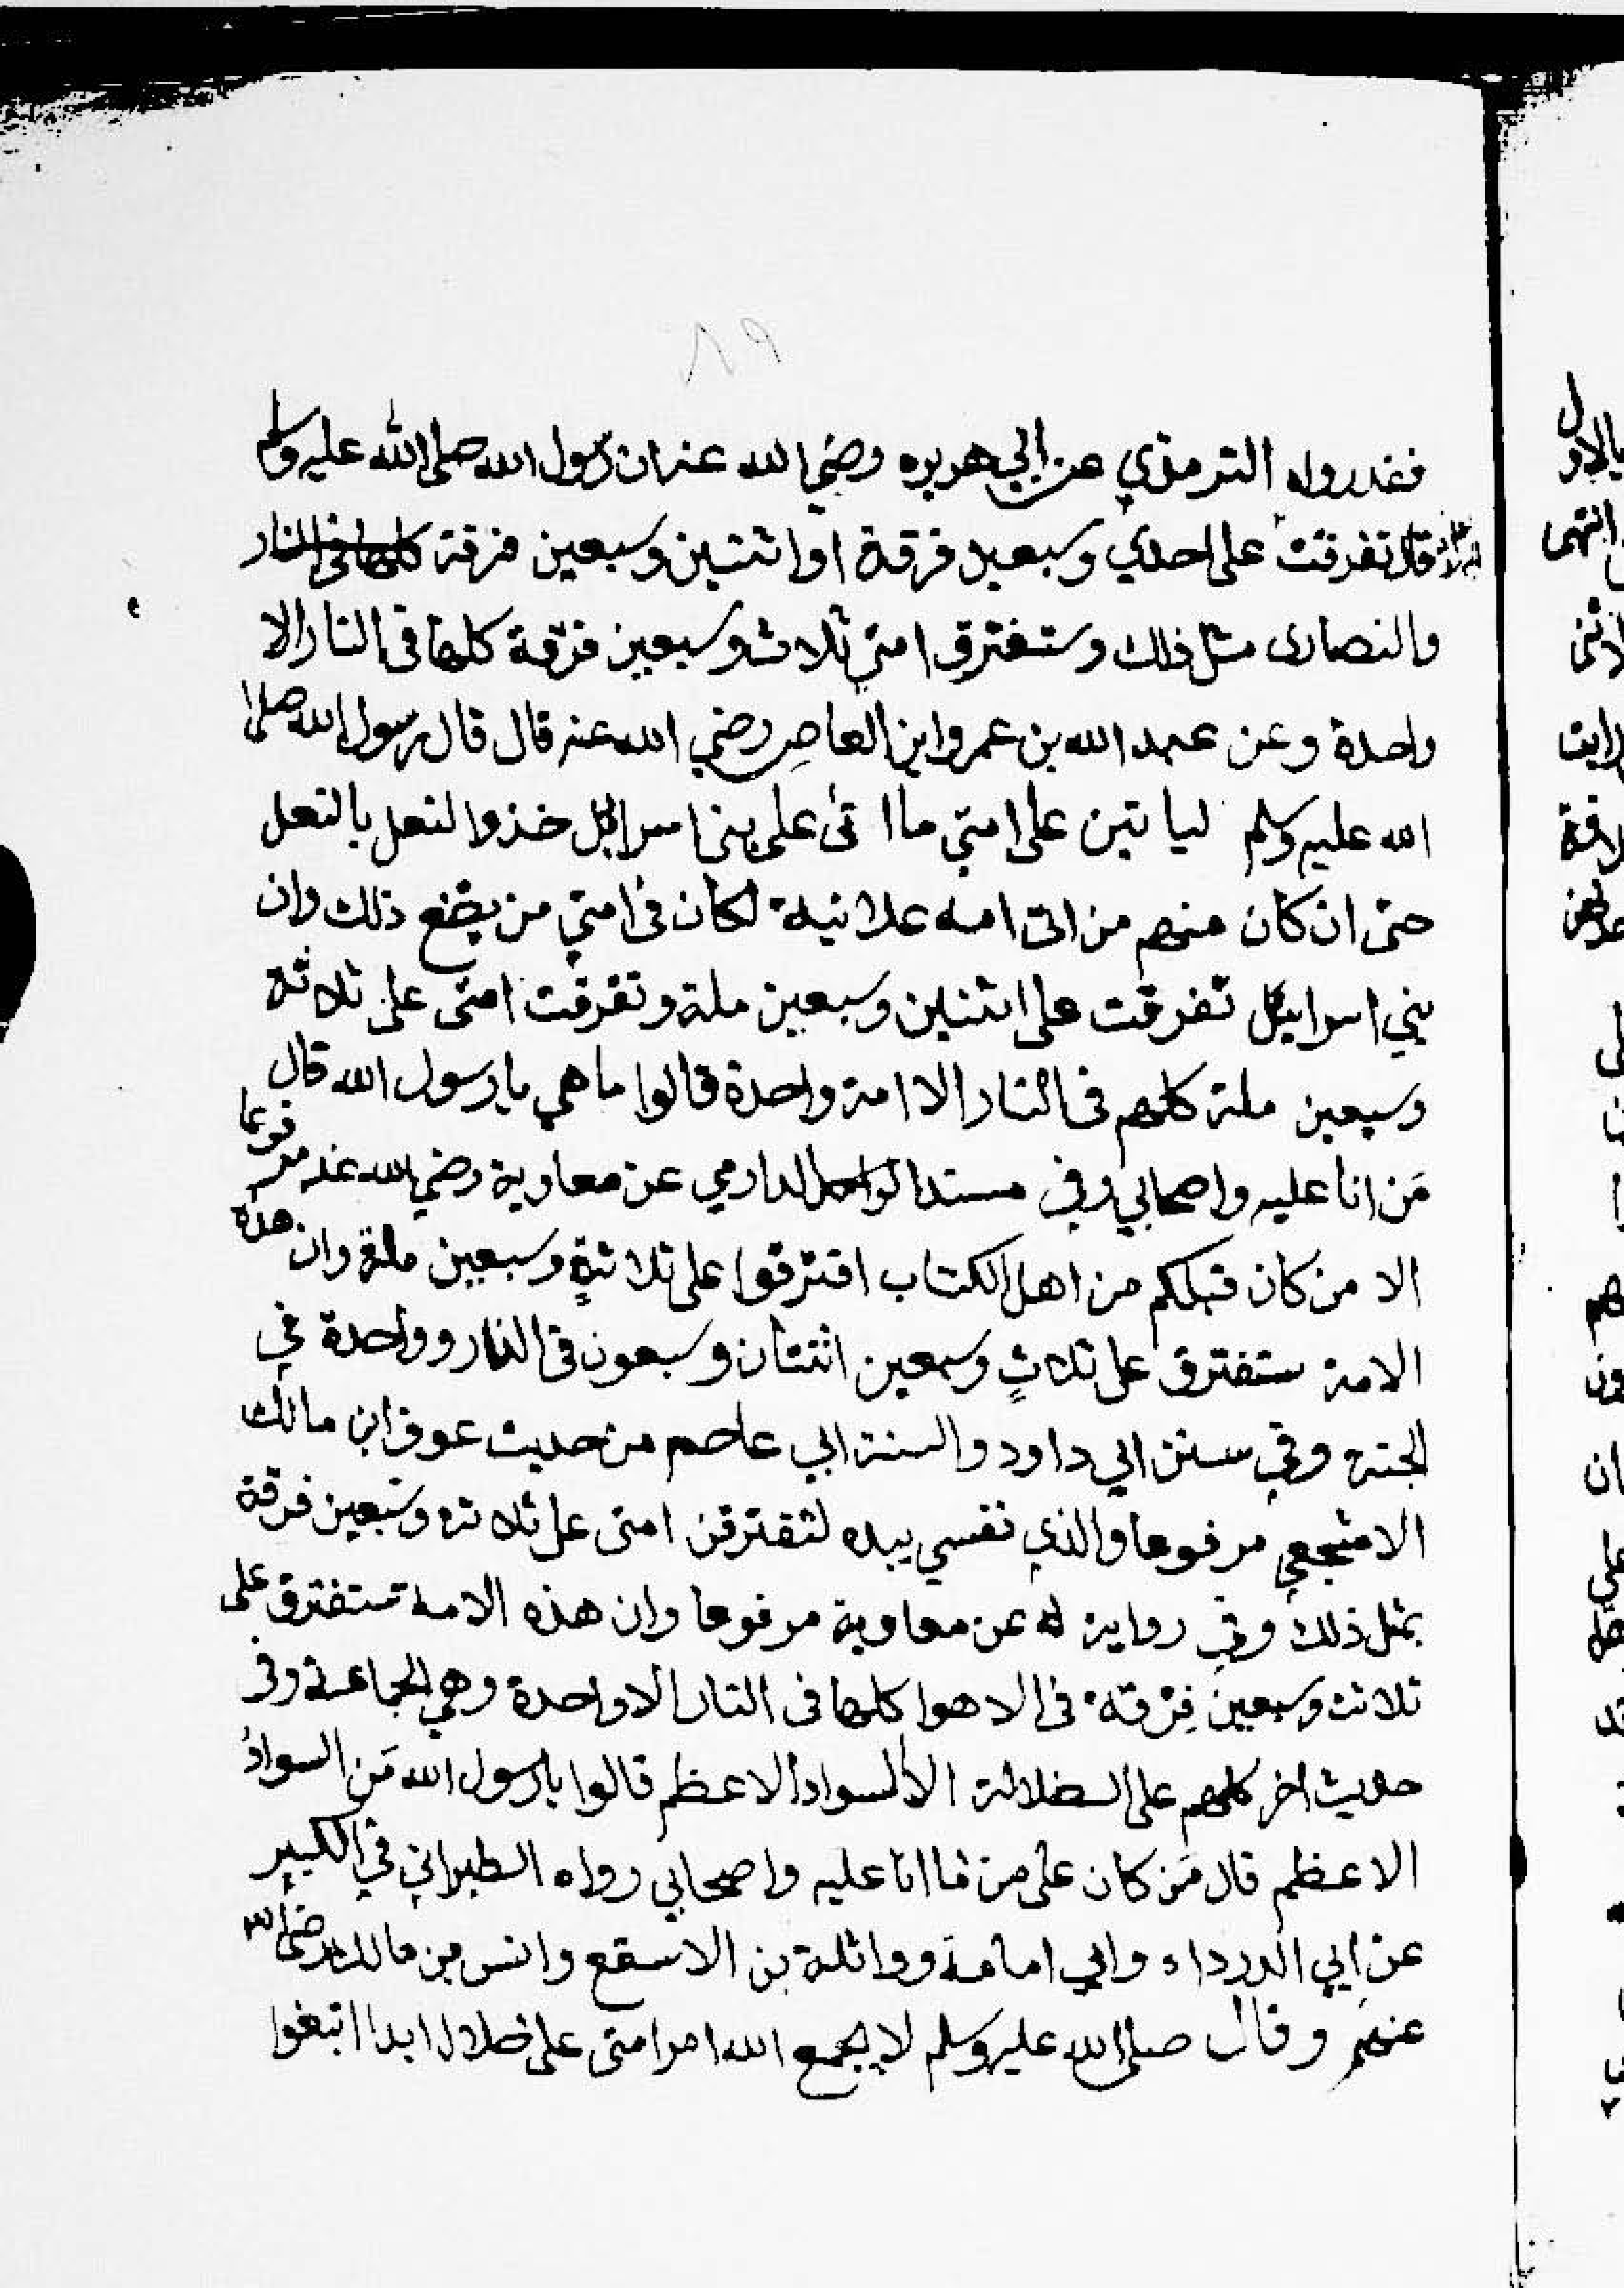 ٨٩
فقد رواه الترمذي عن ابي هريره رضي الله عنه ان رسول الله صلى الله عليه وسلم
قال تفرقت على احدي وسبعين فرقة او اثنتين وسبعين فرقة كلها في النار
والنصارى مثل ذلك وستفترق امتي ثلاث وسبعين فرقة كلها في النار الا
واحدة وعن عبد الله بن عمرو ابن العاص رضي الله عنه قال قال رسول الله صلى
الله عليه وسلم ليا تين على امتي ما اتى على بني اسرائيل خذو النعل بالنعل
حتى ان كان منهم من اتى امه علانية لكان في امتي من يضع ذلك وان
بني اسرائيل تفرقت على اثنتين وسبعين ملة وتفرقت امتي على ثلاثة
وسبعين ملة كلهم في النار الا امة واحدة قالوا ما هي يا رسول الله قال
مَن انا عليه واصحابي وفي مسند الدارمي عن معاوية رضي الله عنه مرفوعا
الا من كان قبلكم من اهل الكتاب افترقوا على ثلاثةٍ وسبعين ملة وان هذه
الامة ستفترق على ثلاثٍ وسبعين اثنتان وسبعون في النار وواحدة في
الجنة وفي سنن ابي داود والسنة ابي عاصم من حديث عوف ابن مالك
الاشجعي مرفوعا والذي نفسي بيده لتفترقن امتي على ثلاثه وسبعين فرقة
بمثل ذلك وفي رواية له عن معاوية مرفوعا وان هذه الامة ستفترق على
ثلاث وسبعين فِرْقة في الاهوا كلها في النار الا واحدة وهي الجماعة وفي
حديث اخر كلهم على الضلالة الا السواد الاعظم قالوا يا رسول الله مَن السوادُ
الاعظم قال مَن كان على من ما انا عليه واصحابي رواه الطبراني في الكبير
عن ابي الدرداء وابي امامة وواثلة بن الاسقع وانس بن مالك رضي الله
عنهم وقال صلى الله عليه وسلم لا يجمع الله امر امتي على ضلال ابدا اتبغوا